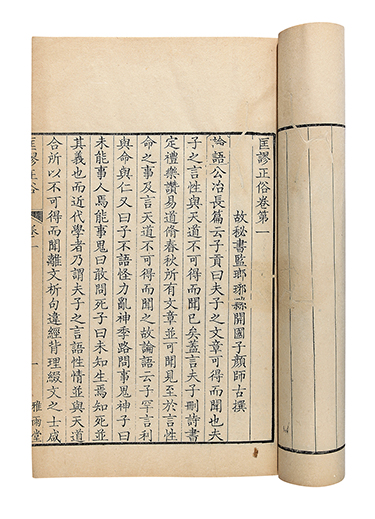 匡謬正俗卷第一
故秘書監瑯琊縣開國子顏師古撰
論語公冶長篇云子貢曰夫子之文章可得而聞也夫
子之言性與天道不可得而聞已矣蓋言夫子刪詩書
定禮樂讚易道脩春秋所有文章並可聞見至於言性
命之事及言天道不可得而聞之故論語云子罕言利
與命與仁又曰子不語怪力亂神季路問事鬼神子曰
未能事人焉能事鬼曰敢問死子曰未知生焉知死並
其義也而近代學者乃謂夫子之言語性情並與天道
合所以不可得而聞離文析句違經背理綴文之士咸
匡謬正俗 卷一 一 雅雨堂